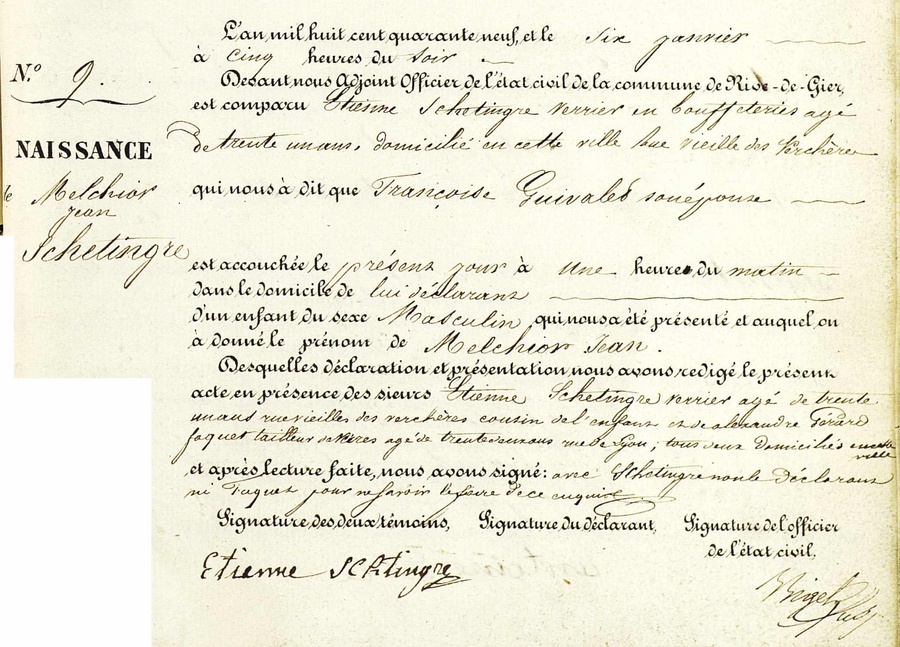 N.º 9.
NAISSANCE
de Melchior
Jean
Schetingre
L'an mil huit cent quarante neuf, et le six janvier
à cinq heures du soir
Devant nous Adjoint Officier de l'état civil de la commune de Rive-de-Gier,
est comparu Etienne Schetingre verrier en bouffteries agé
de trente un ans, domicilié en cette ville rue vieille des Verchères
qui nous à dit que Françoise Guivalés son épouse
est accouchée le présent jour à une heures du matin
dans le domicile de lui déclarant
d'un enfant du sexe Masculin qui nous a été présenté et auquel on
à donné le prénom de Melchior Jean.
Desquelles déclaration et présentation nous avons redigé le présent
acte en présence des sieurs Etienne Schetingre verrier agé de trente
un ans rue vieilles des verchères cousin de l'enfant et de alexandre Gérard
faquet tailleur de verres agé de trente deux ans rue de Lyon, tous deux domiciliés en cette
ville
et après lecture faite, nous avons signé: avec Schetingre non le déclarant
ni Faquet pour ne savoir le faire de ce enquis
Signature des deux témoins, Signature du déclarant, Signature de l'officier
de l'état civil,
Etienne SChtingre